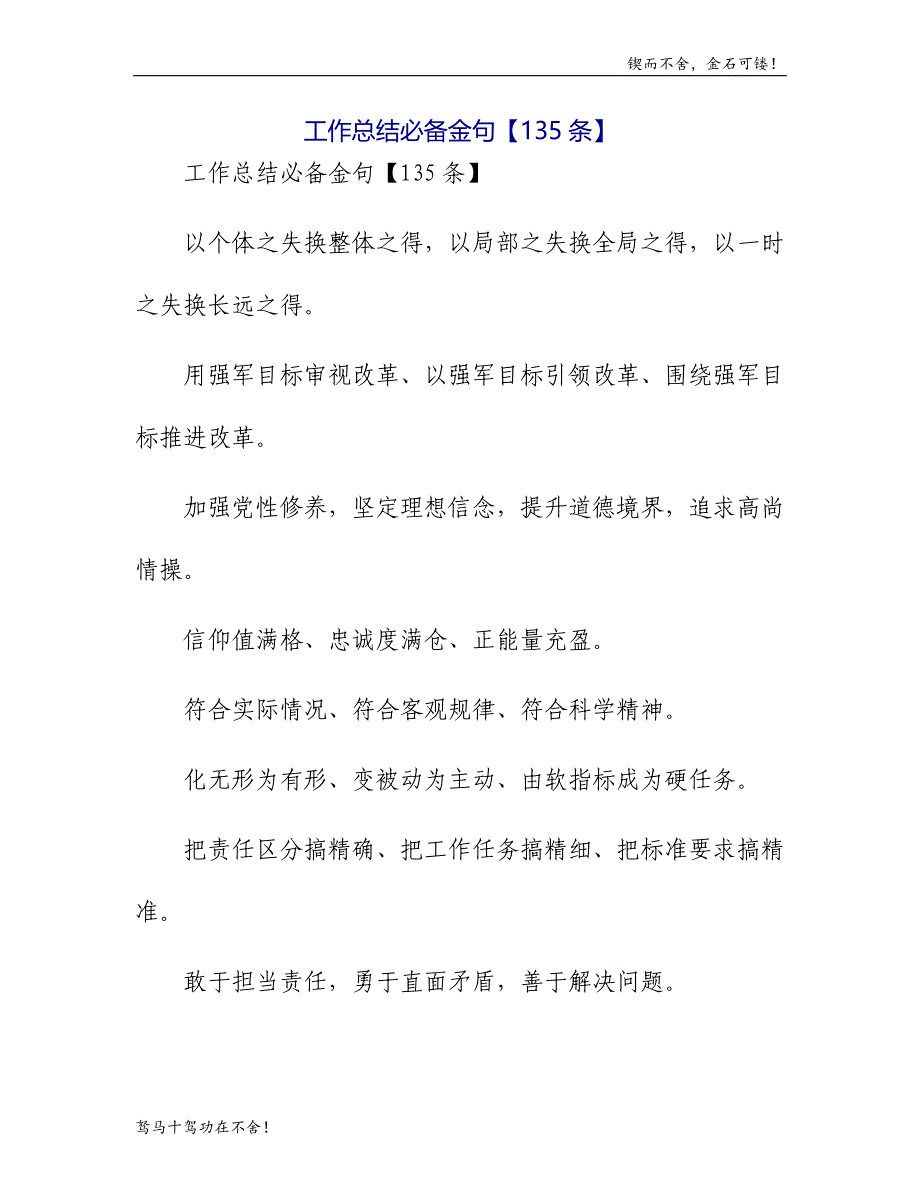 锲而不舍，金石可镂！
工作总结必备金句【135 条】
工作总结必备金句【135 条】
以个体之失换整体之得，以局部之失换全局之得，以一时
之失换长远之得。
用强军目标审视改革、以强军目标引领改革、围绕强军目
标推进改革。
加强党性修养，坚定理想信念，提升道德境界，追求高尚
情操。
信仰值满格、忠诚度满仓、正能量充盈。
符合实际情况、符合客观规律、符合科学精神。
化无形为有形、变被动为主动、由软指标成为硬任务。
把责任区分搞精确、把工作任务搞精细、把标准要求搞精
准。
敢于担当责任，勇于直面矛盾，善于解决问题。
驽马十驾功在不舍！